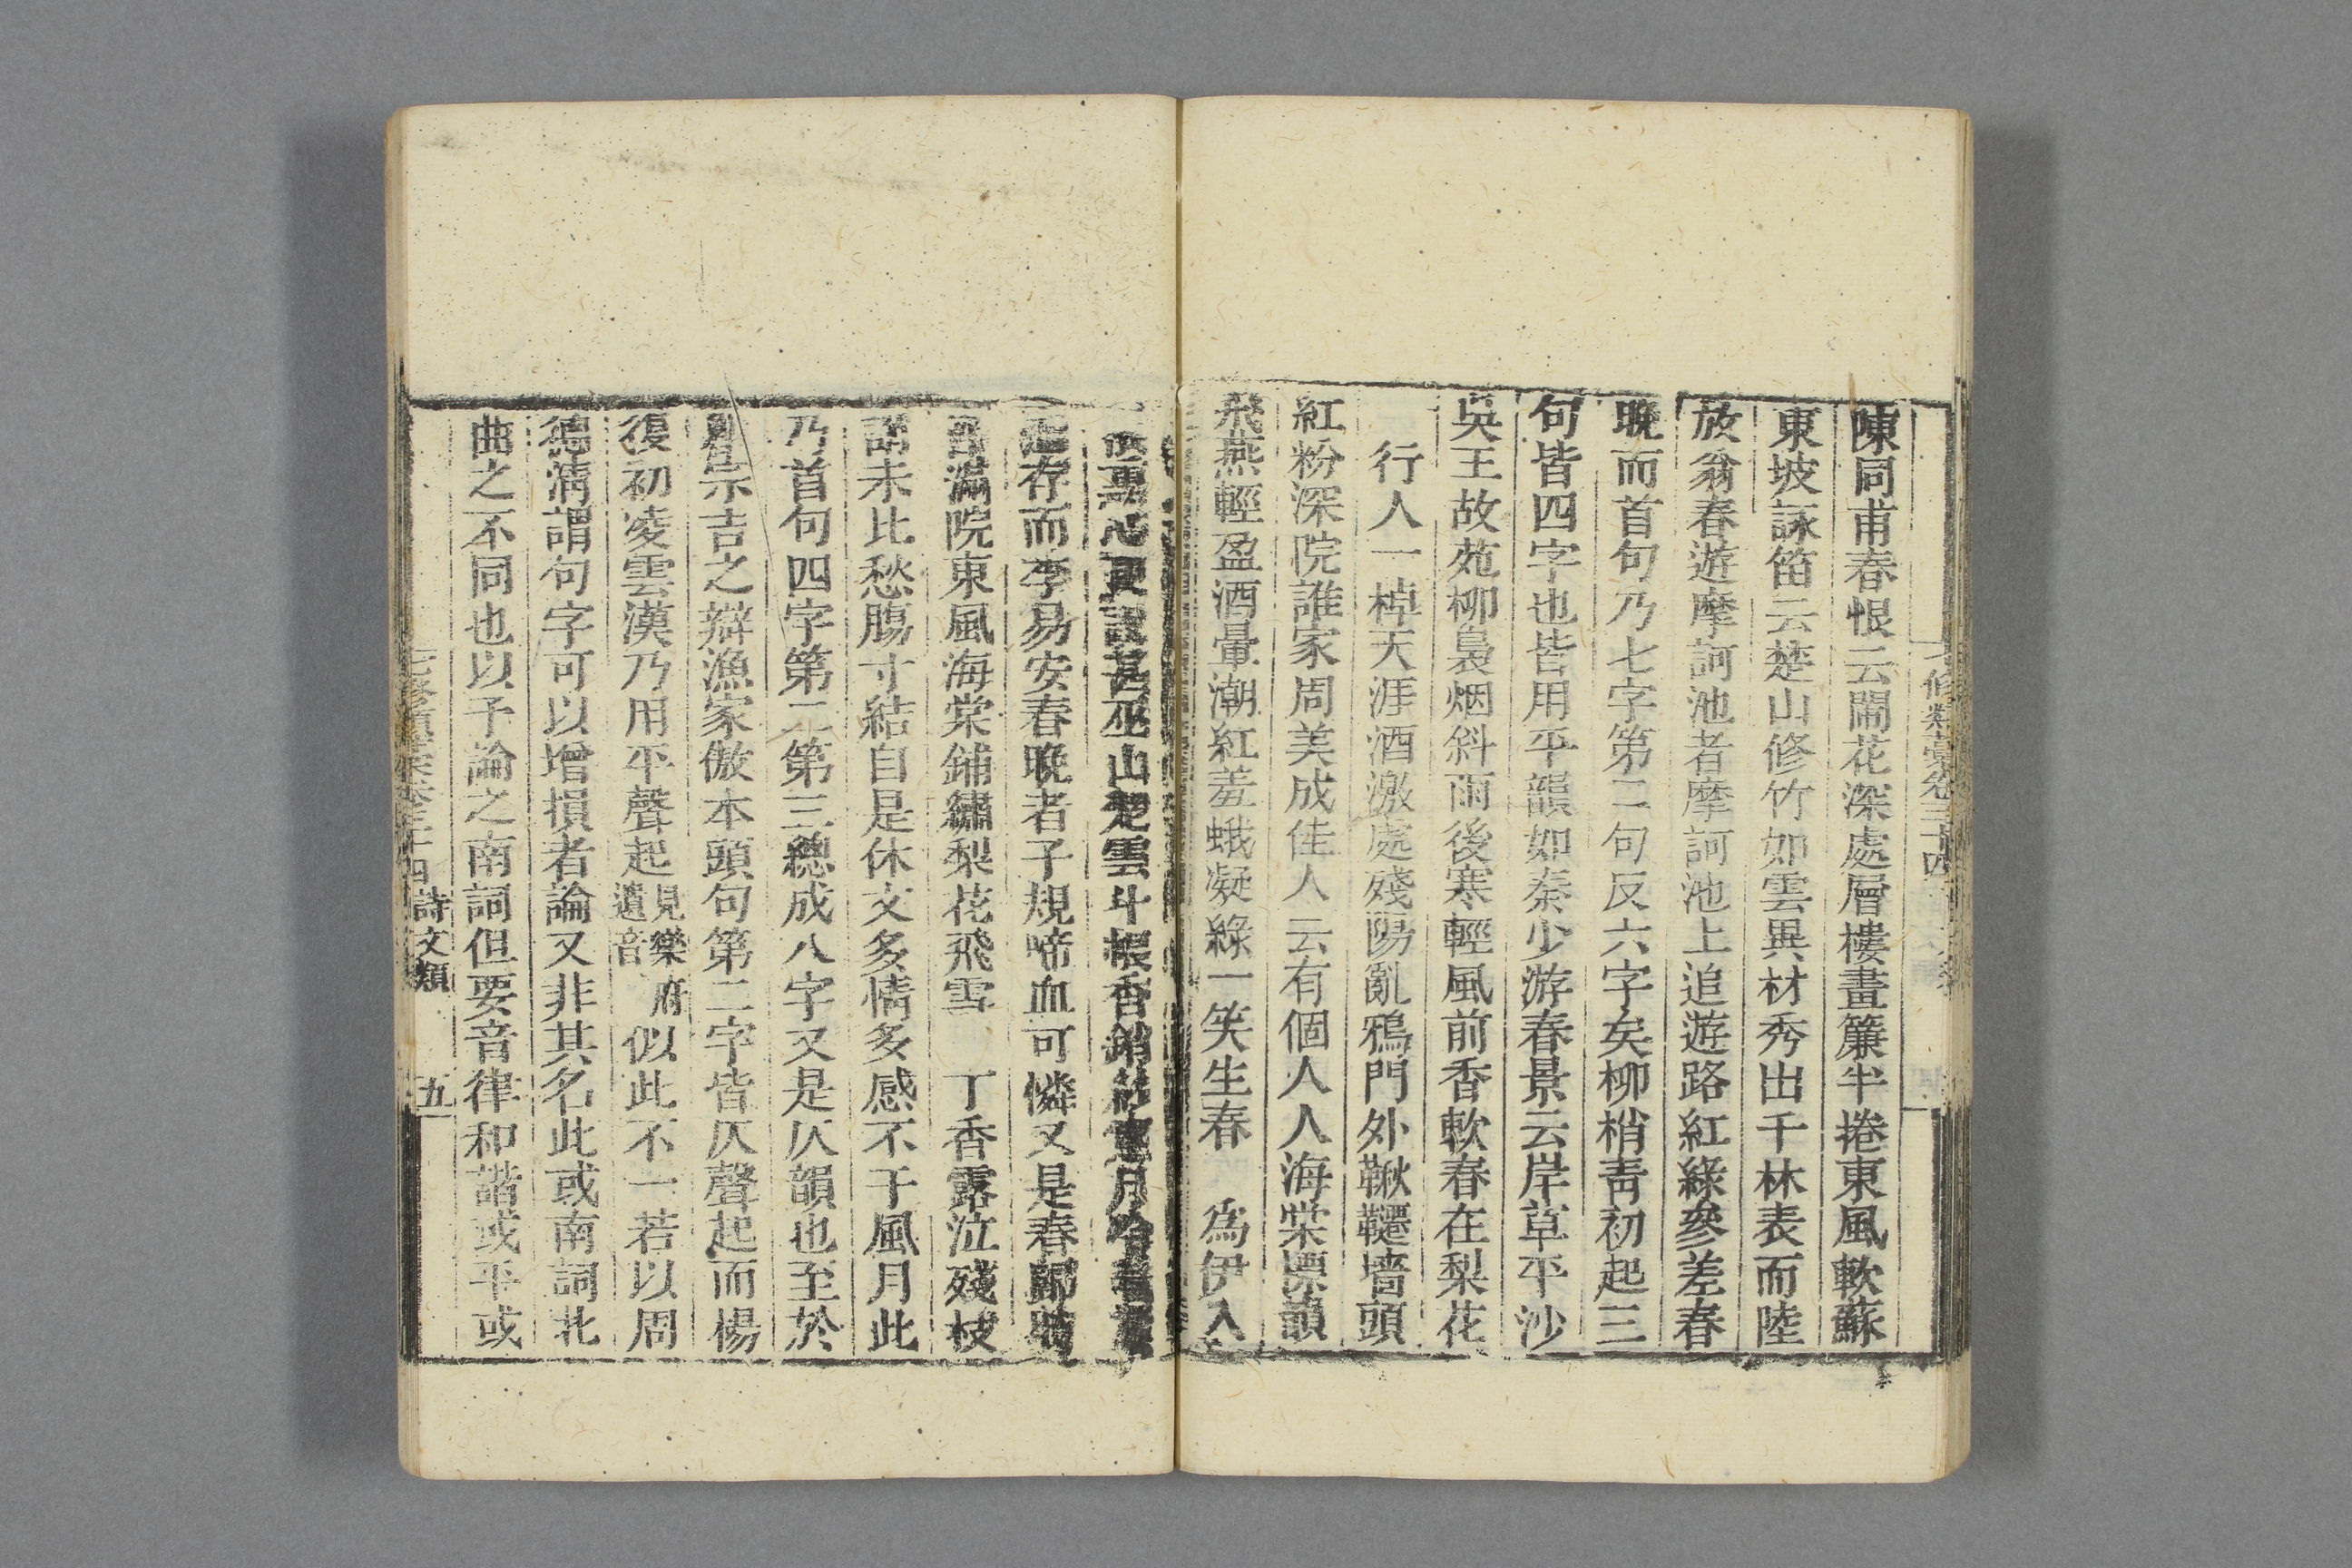 修類藁卷三十四
陳同甫春恨云鬧花深處層樓畫簾半捲東風軟蘇
東坡詠笛云楚山修竹如雲異材秀出千林表而陸
放翁春遊摩訶池者摩訶池上追遊路紅綠參差春
晚而首句乃七字第二句反六字矣柳梢靑初起三
句皆四字也皆用平韻如秦少游春景云岸草平沙
吳王故苑柳裊烟斜雨後寒輕風前香軟春在梨花
行人一棹天涯酒激處殘陽亂鴉門外鞦韆墻頭
紅粉深院誰家周美成佳人云有個人人海棠標韻
飛燕輕盈酒暈潮紅羞蛾凝綠一笑生春 爲伊入
心更說甚巫山楚雲斗帳香銷月冷
存而李易安春晚者子規啼血可憐又是春歸時
滿院東風海棠鋪繡梨花飛雪 丁香露泣殘枝
謂未比愁腸寸結自是休文多情多感不干風月此
乃首句四字第二第三總成八字又是仄韻也至於
宗吉之辯漁家傲本頭句第二字皆仄聲起而楊
復初凌雲漢乃用平聲起見樂府遺音似此不一若以周
德淸謂句字可以增損者論又非其名此或南詞北
曲之不同也以予論之南詞但要音律和諧或平或
四 詩文類 五